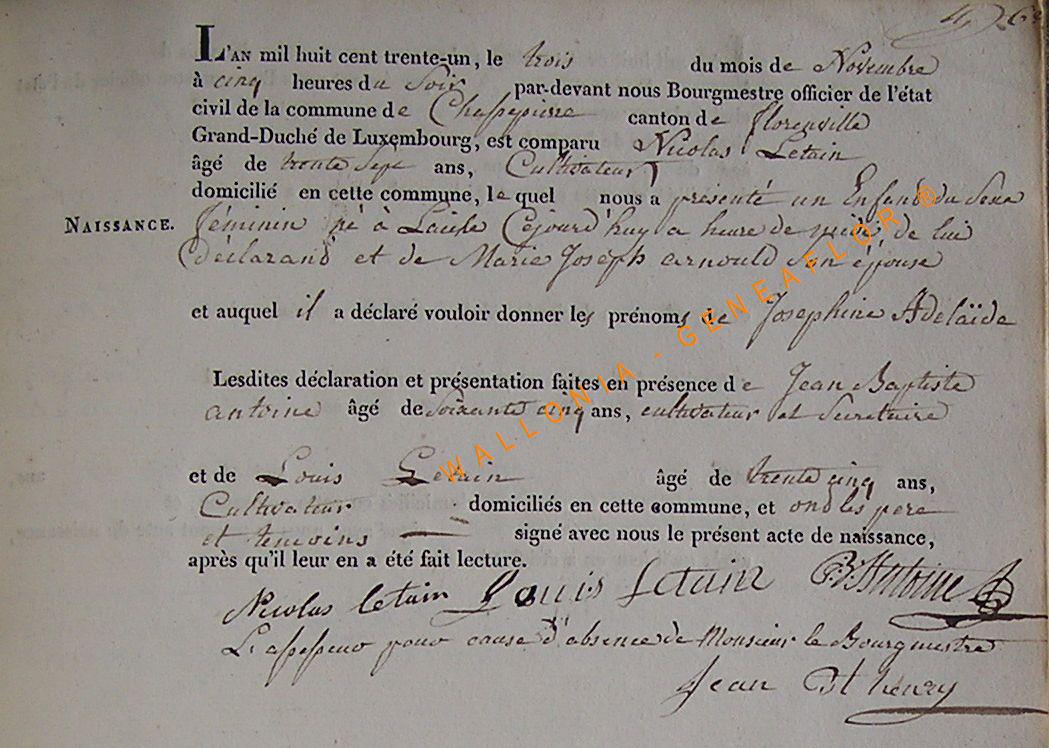 L'an mil huit cent trente-un, le trois du mois de Novembre
à cinq heures du Soir par-devant nous Bourgmestre officier de l'état
civil de la commune de Chassepierre canton de florenville
Grand-Duché de Luxembourg, est comparu Nicolas Letain
âgé de trente sept ans, Cultivateur
domicilié en cette commune, le quel nous a présenté un Enfant du Sexe
NAISSANCE. féminin né à Laiche Cejourd'huy a heure de midi de lui
Déclarand et de Marie Joseph arnould Son épouse
et auquel il a déclaré vouloir donner les prénoms de Josephine Adelaïde
Lesdites déclaration et présentation faites en présence de Jean Baptiste
antoine âgé de Soixante cinq ans, cultivateur et Secretaire
et de Louis Letain âgé de trente cinq ans,
Cultivateur domiciliés en cette commune, et ond les pere
et temoins signé avec nous le présent acte de naissance,
après qu'il leur en a été fait lecture.
Nicolas letain Louis Letain B. Antoine
L'assesseur pour cause d'absence de Monsieur le Bourgmestre
Jean Bt henry
WALLONIA - GENEAFLOR ®